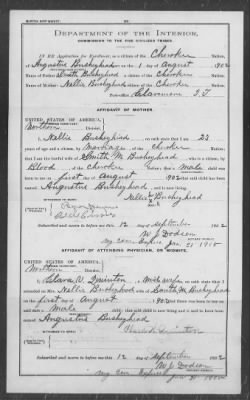 DEPARTMENT OF THE INTERIOR,
COMMISSION TO THE FIVE CIVILIZED TRIBES.
IN RE Application for Enrollment, as a citizen of the Cherokee Nation,
of Augustus Bushyhead born on the 1 day of August 1902
Name of Father: Smith Bushyhead a citizen of the Cherokee Nation.
Name of Mother: Nellie Bushyhead a citizen of the Cherokee Nation.
Claremore I.T.
AFFIDAVIT OF MOTHER.
UNITED STATES OF AMERICA,
Northern District.
I, Nellie Bushyhead, on oath state that I am 23
years of age and a citizen, by marriage, of the Cherokee Nation;
that I am the lawful wife of Smith M Bushyhead, who is a citizen, by
Blood of the Cherokee Nation; that a male child was
born to me on first day of August 1902, that said child has been
named Augustus Bushyhead, and is now living.
Nellie Bushyhead
Subscribed and sworn to before me this 12 day of September 1902
W J Dodson
NOTARY PUBLIC.
AFFIDAVIT OF ATTENDING PHYSICIAN, OR MIDWIFE.
UNITED STATES OF AMERICA,
Northern District.
on oath state that I
attended on Mrs. Nellie Bushyhead, wife of Smith M Bushyhead
on the first day of August 1902, that there was born to her on said date a
Male child; that said child is now living and is said to have been
named Augustus Bushyhead
Subscribed and sworn to before me this 12 day of September 1902
W J Dodson